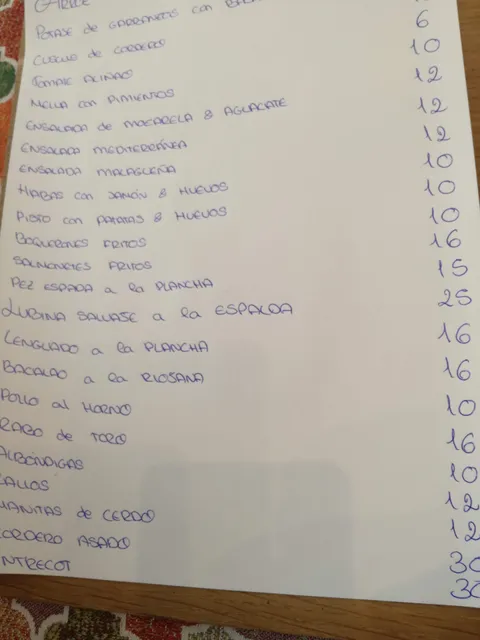 POTAJE de GARBANZOS con
CUSCUS de CORDERO 6
TOMATE ALIÑAO 10
MELVA con PIMIENTOS 12
ENSALADA de MOZARELA & AGUACATE 12
ENSALADA MEDITERRÁNEA 12
ENSALADA MALAGUEÑA 10
HABAS con JAMÓN & HUEVOS 10
PISTO con PATATAS & HUEVOS 10
BOQUERONES FRITOS 16
SALMONETES FRITOS 15
PEZ ESPADA a la PLANCHA 25
LUBINA SALVAJE a la ESPALDA 16
LENGUADO a la PLANCHA 16
BACALAO a la RIOJANA 10
POLLO al HORNO 16
RABO de TORO 10
ALBÓNDIGAS 12
CALLOS 12
MANITAS de CERDO 30
CORDERO ASADO 30
ENTRECOT